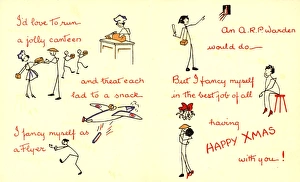 I'd love to run
a jolly canteen
and treat each
lad to a snack
I fancy myself as
a Flyer
An A.R.P. Warden
would do—
But I fancy myself
in the best job of all
having
HAPPY XMAS
with you!